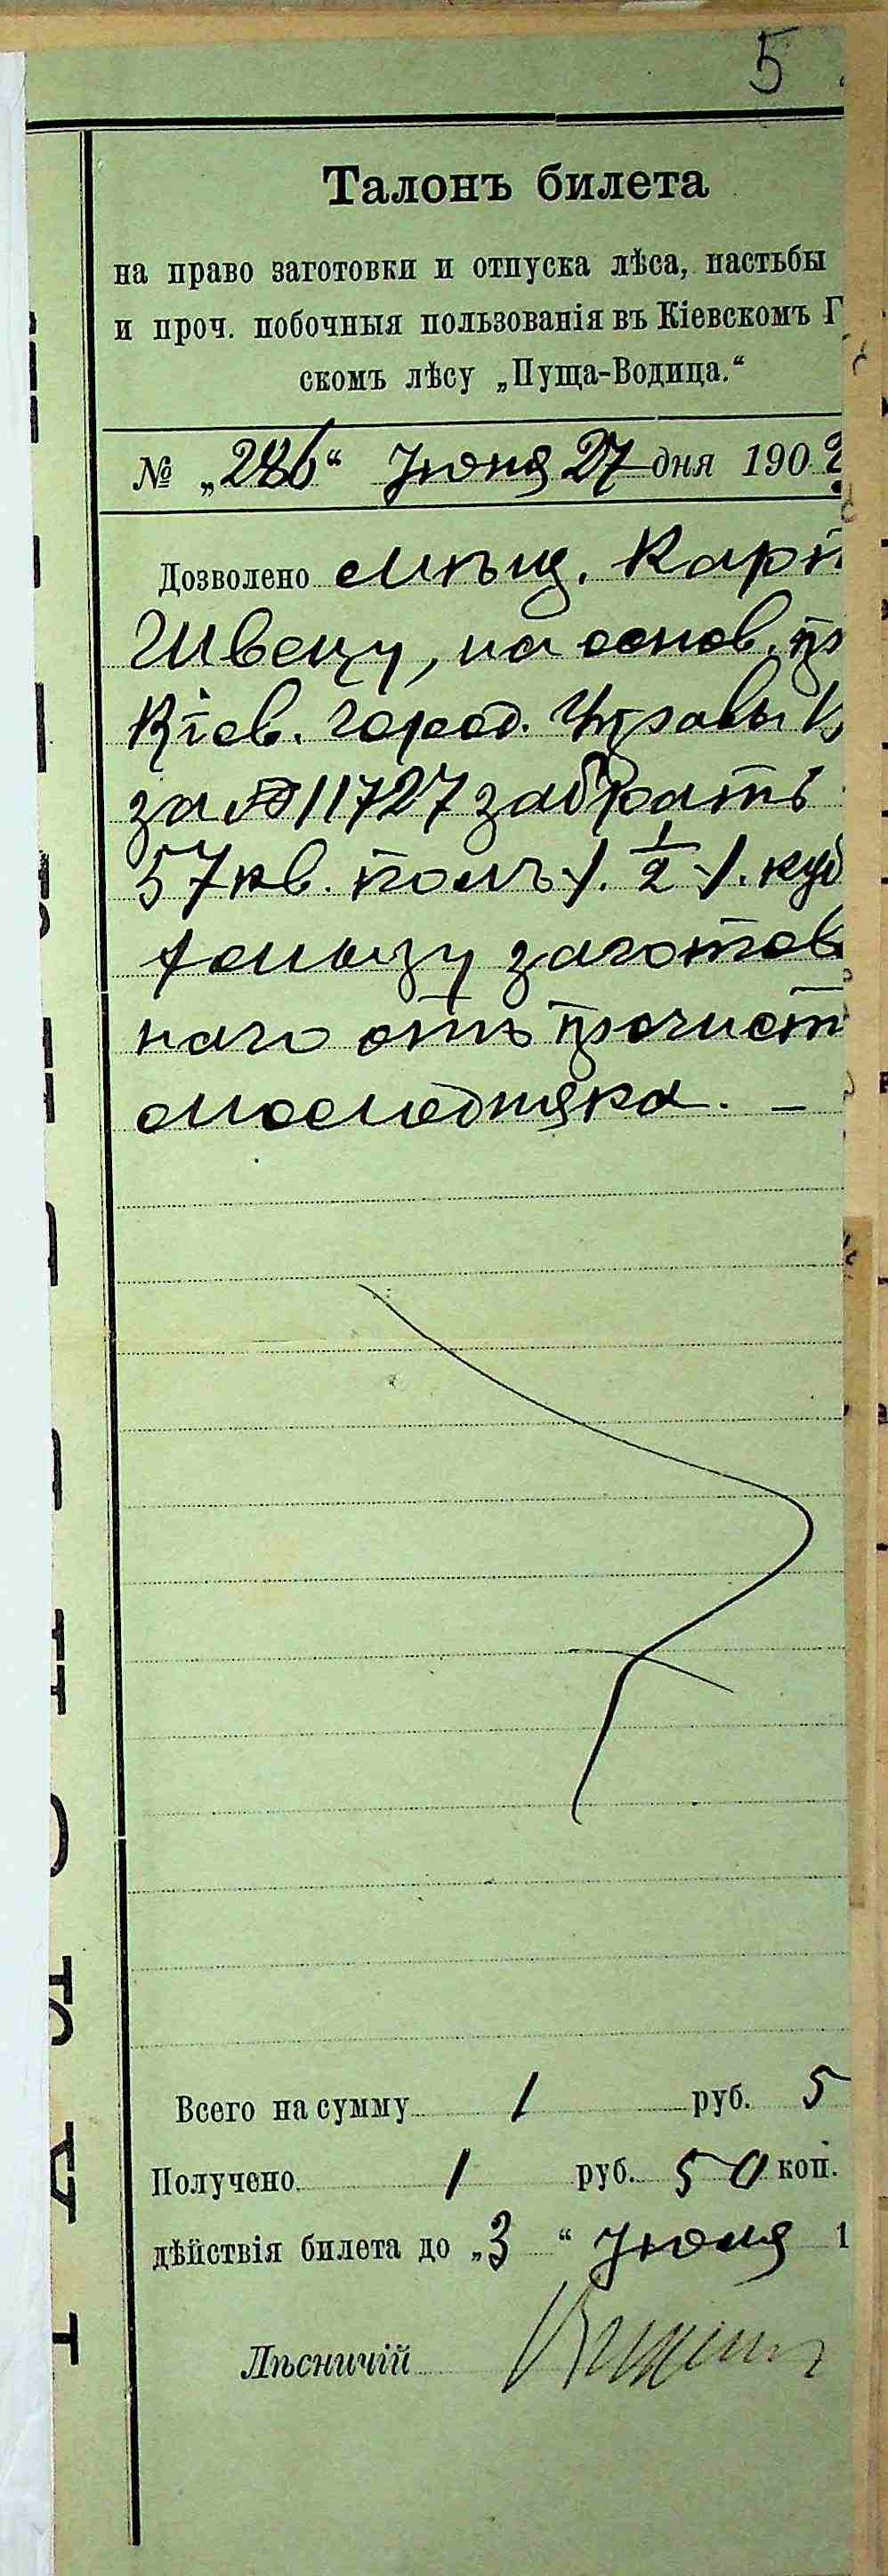 5
Талонъ билета
на право заготовки и отпуска лѣса, пастьбы
и проч. побочныя пользованія въ Кіевскомъ Г
скомъ лѣсу „Пуща-Водица.“
№ „286“ Іюня 27 дня 190
Дозволено Мѣщ. Карп
Швецу, на основ. пр
Кіев. Город. Управы
за № 11727 забрать
57 кв. полъ /. 1/2 /. куб
хомызу заготов
наго отъ прочист
молодняка. —
Всего на сумму 1 руб. 5
Получено 1 руб. 50 коп.
дѣйствія билета до „3“ Іюля 1
Лѣсничій